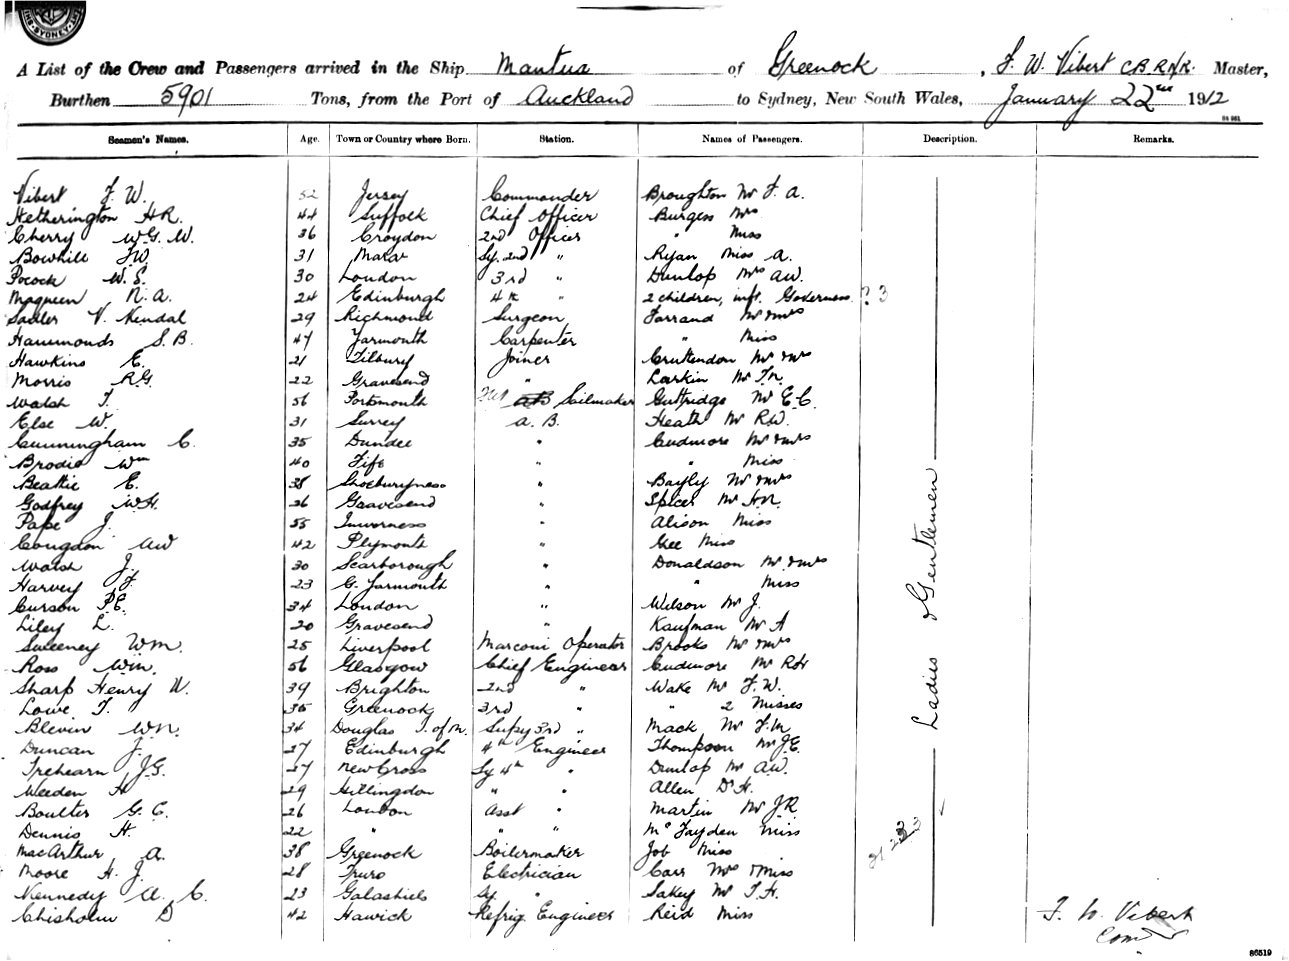 SYDNEY
A List of the Crew and Passengers arrived in the Ship Mantua of Greenock, F. W. Vibert CB RNR Master,
Burthen 5901 Tons, from the Port of Auckland to Sydney, New South Wales, January 22nd 1912
Seamen's Names. Age. Town or Country where Born. Station. Names of Passengers. Description. Remarks.
Vibert F. W. 52 Jersey Commander Broughton Mr F. A.
Hetherington H R. 44 Suffolk Chief Officer Burgess Mrs
Cherry W. G. W. 36 Croydon 2nd Officer " Miss
Bowhill F W. 31 Sy. 2nd " Ryan Miss A.
Pocock W. S. 30 London 3rd " Dunlop Mrs A W.
Magneen N. A. 24 Edinburgh 4th " 2 children, inft. Governess ? 3
Sadler V. Kendal 29 Richmond Surgeon Farrand Mr & Mrs
Hammonds S. B. 47 Yarmouth Carpenter " Miss
Hawkins E. 21 Tilbury Joiner Cruttendon Mr & Mrs
Morris R G. 22 Gravesend " Larkin Mr T. N.
Walsh T. 56 Portsmouth Sailmaker Guttridge Mr E. C.
Else W. 31 Surrey A. B. Heath Mr R W.
Cunningham C. 35 Dundee " Cudmore Mr & Mrs
Brodie Wm 40 Fife " " Miss
Beattie E. 38 Shoeburyness " Bayly Mr & Mrs
Godfrey W H. 36 Gravesend " Spicer Mr H N.
Pape J. 55 Inverness " Alison Miss
Congdon A W 42 Plymouth " Gee Miss
Walsh J. 30 Scarborough " Donaldson Mr & Mrs
Harvey F. 23 G. Yarmouth " " Miss
Curson P. E. 34 London " Wilson Mr J.
Liley L. 20 Gravesend " Kaufman Mr A
Sweeney Wm. 25 Liverpool Marconi Operator Brooks Mr & Mrs
Ross Wm. 56 Glasgow Chief Engineer Cudmore Mr R H
Sharp Henry W. 39 Brighton 2nd " Wake Mr F. W.
Lowe T. 35 Greenock 3rd " " 2 Misses
Blevin W N. 34 Douglas I. of M. Supy 3rd " Mack Mr F. M.
Duncan J. 27 Edinburgh 4th Engineer Thompson Mr J E.
Trehearn J G. 27 New Cross Sy 4th " Dunlop Mr A W.
Weeden H 29 Hillingdon " " Allen Dr H.
Boulter G. C. 26 London Asst " Martin Mr J R.
Dennis H. 22 " " " McFayden Miss
MacArthur A. 38 Greenock Boilermaker Job Miss
Moore H. J. 28 Truro Electrician Carr Mrs & Miss
Kennedy A. C. 23 Galashiels Sy. " Sakey Mr T. H.
Chisholm D 42 Hawick Refrig. Engineer Reid Miss
Ladies & Gentlemen
F. W. Vibert
Comdr
86519